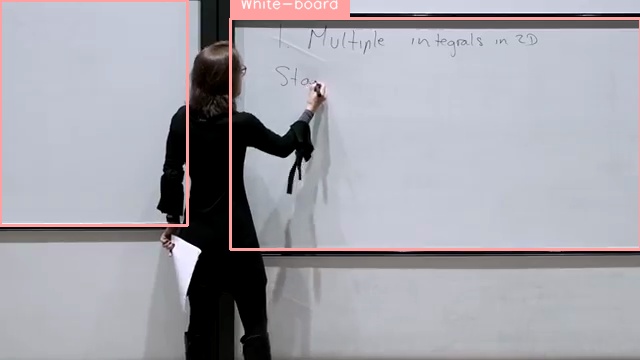 White-board
1. Multiple integrals in 2D
Sta